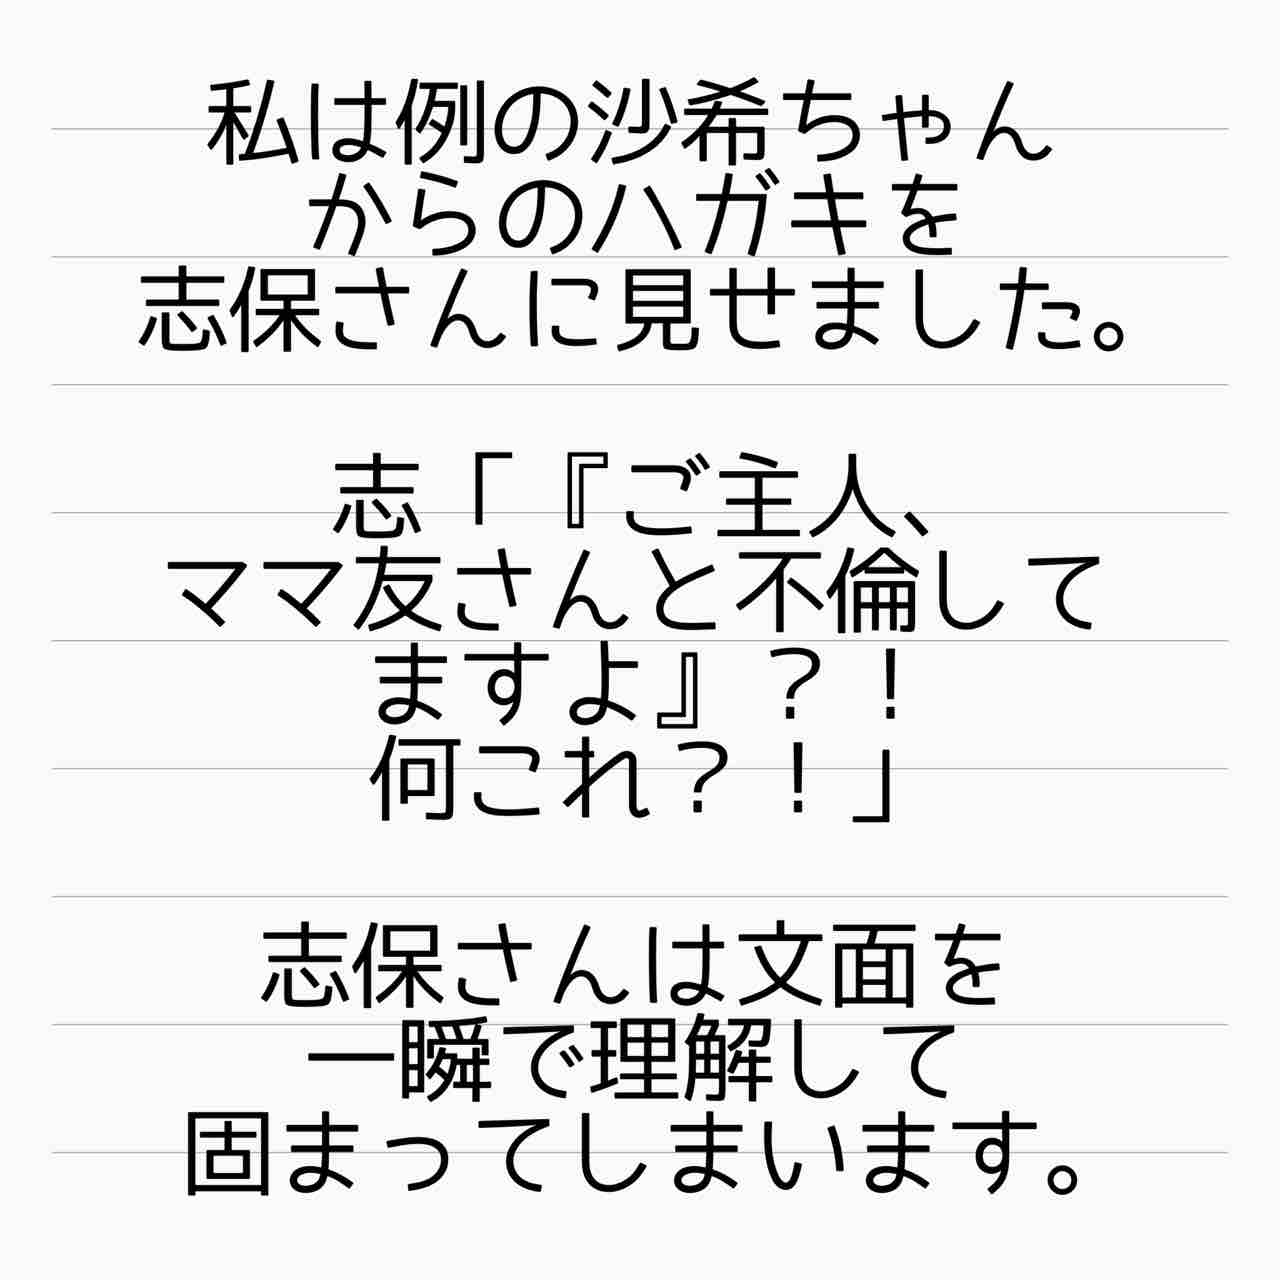 私は例の沙希ちゃん
からのハガキを
志保さんに見せました。
志「『ご主人、
ママ友さんと不倫して
ますよ』？！
何これ？！」
志保さんは文面を
一瞬で理解して
固まってしまいます。